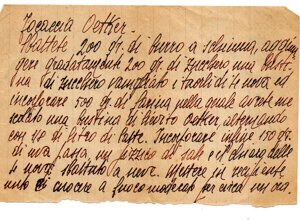 Focaccia Oetker.
Sbattete 200 gr. di burro a schiuma, aggiun
gere gradatamente 200 gr. di zucchero una busti
na di zucchero vanigliato e tuorli di 4 uova ed
incorporare 500 gr. di farina nella quale avrete me
scolato una bustina di lievito Oetker, alternando
con 1/4 di litro di latte. Incorporare infine 150 gr.
di uva passa, un pizzico di sale e
4 uova sbattuti a neve. Mettere in recipiente
unto di cuocere a fuoco moderato per circa un'ora.